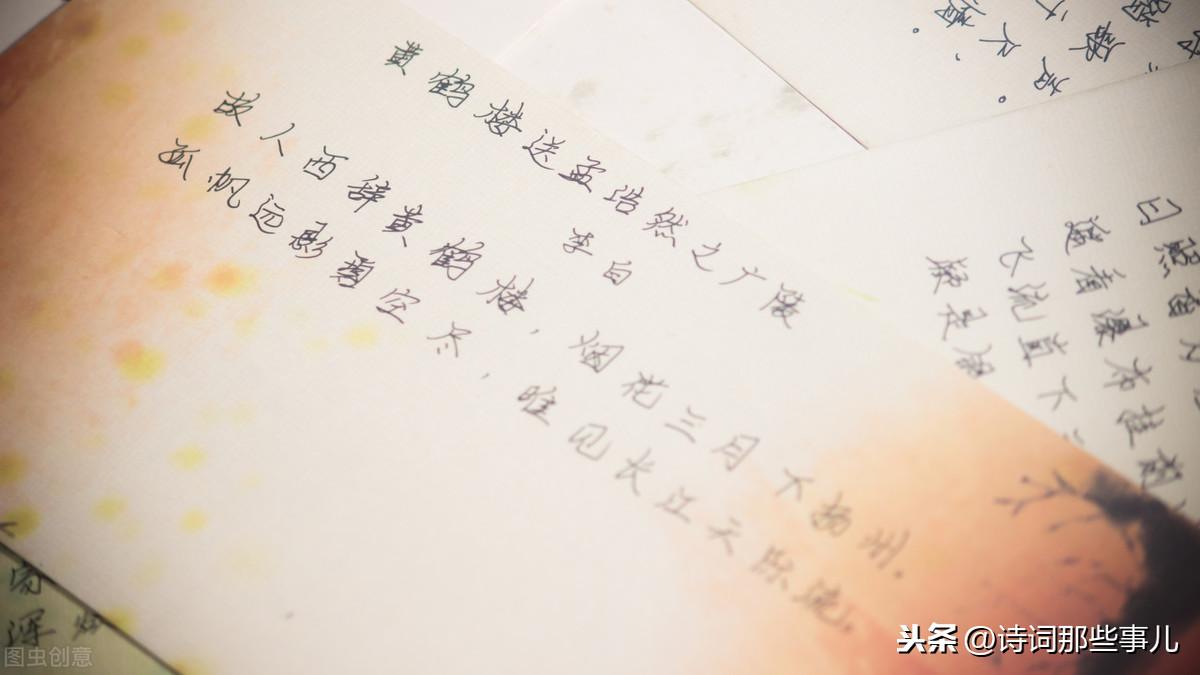 黄鹤楼送孟浩然之广陵
李白
故人西辞黄鹤楼，烟花三月下扬州.
孤帆远影碧空尽，唯见长江天际流.
日照香
遥看瀑布挂
飞流直下
疑是银
图虫创意
头条 @诗词那些事儿